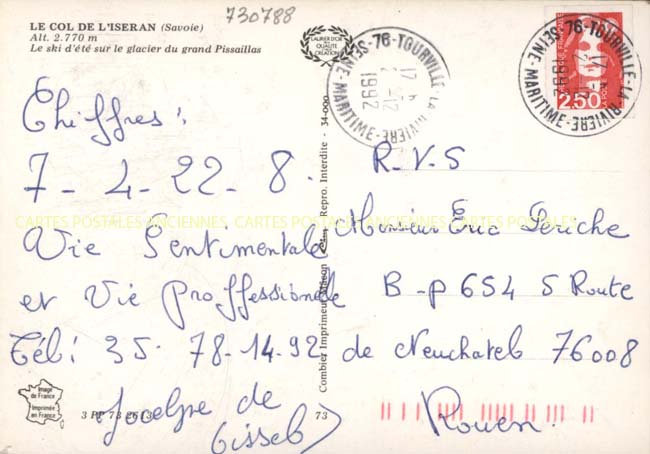 730788
LE COL DE L'ISERAN (Savoie)
Alt. 2.770 m
Le ski d'été sur le glacier du grand Pissaillas
LAURIER D'OR
DE LA
QUALITÉ
CRÉATION
76-TOURVILLE-LA-RIVIERE
SEINE-MARITIME
17 h
2-12
1992
76-TOURVILLE-LA-RIVIERE
SEINE-MARITIME
1992
2,50
Chiffres :
7 - 4 - 22 - 8.
Vie Sentimentale
et Vie Proffessionele
Tél : 35. 78-14-92
Jocelyne de
R-V-S
Monsieur Eric Periche
B-P 654 5 Route
de Neuchatel 76008
Rouen.
Combier Imprimeur Mâcon
Repro. Interdite - 34-000
CARTES POSTALES ANCIENNES, CARTES POSTALES ANCIENNES, CARTES POSTALES
Image
de France
Imprimée
en France
3 PP 73 2613
73